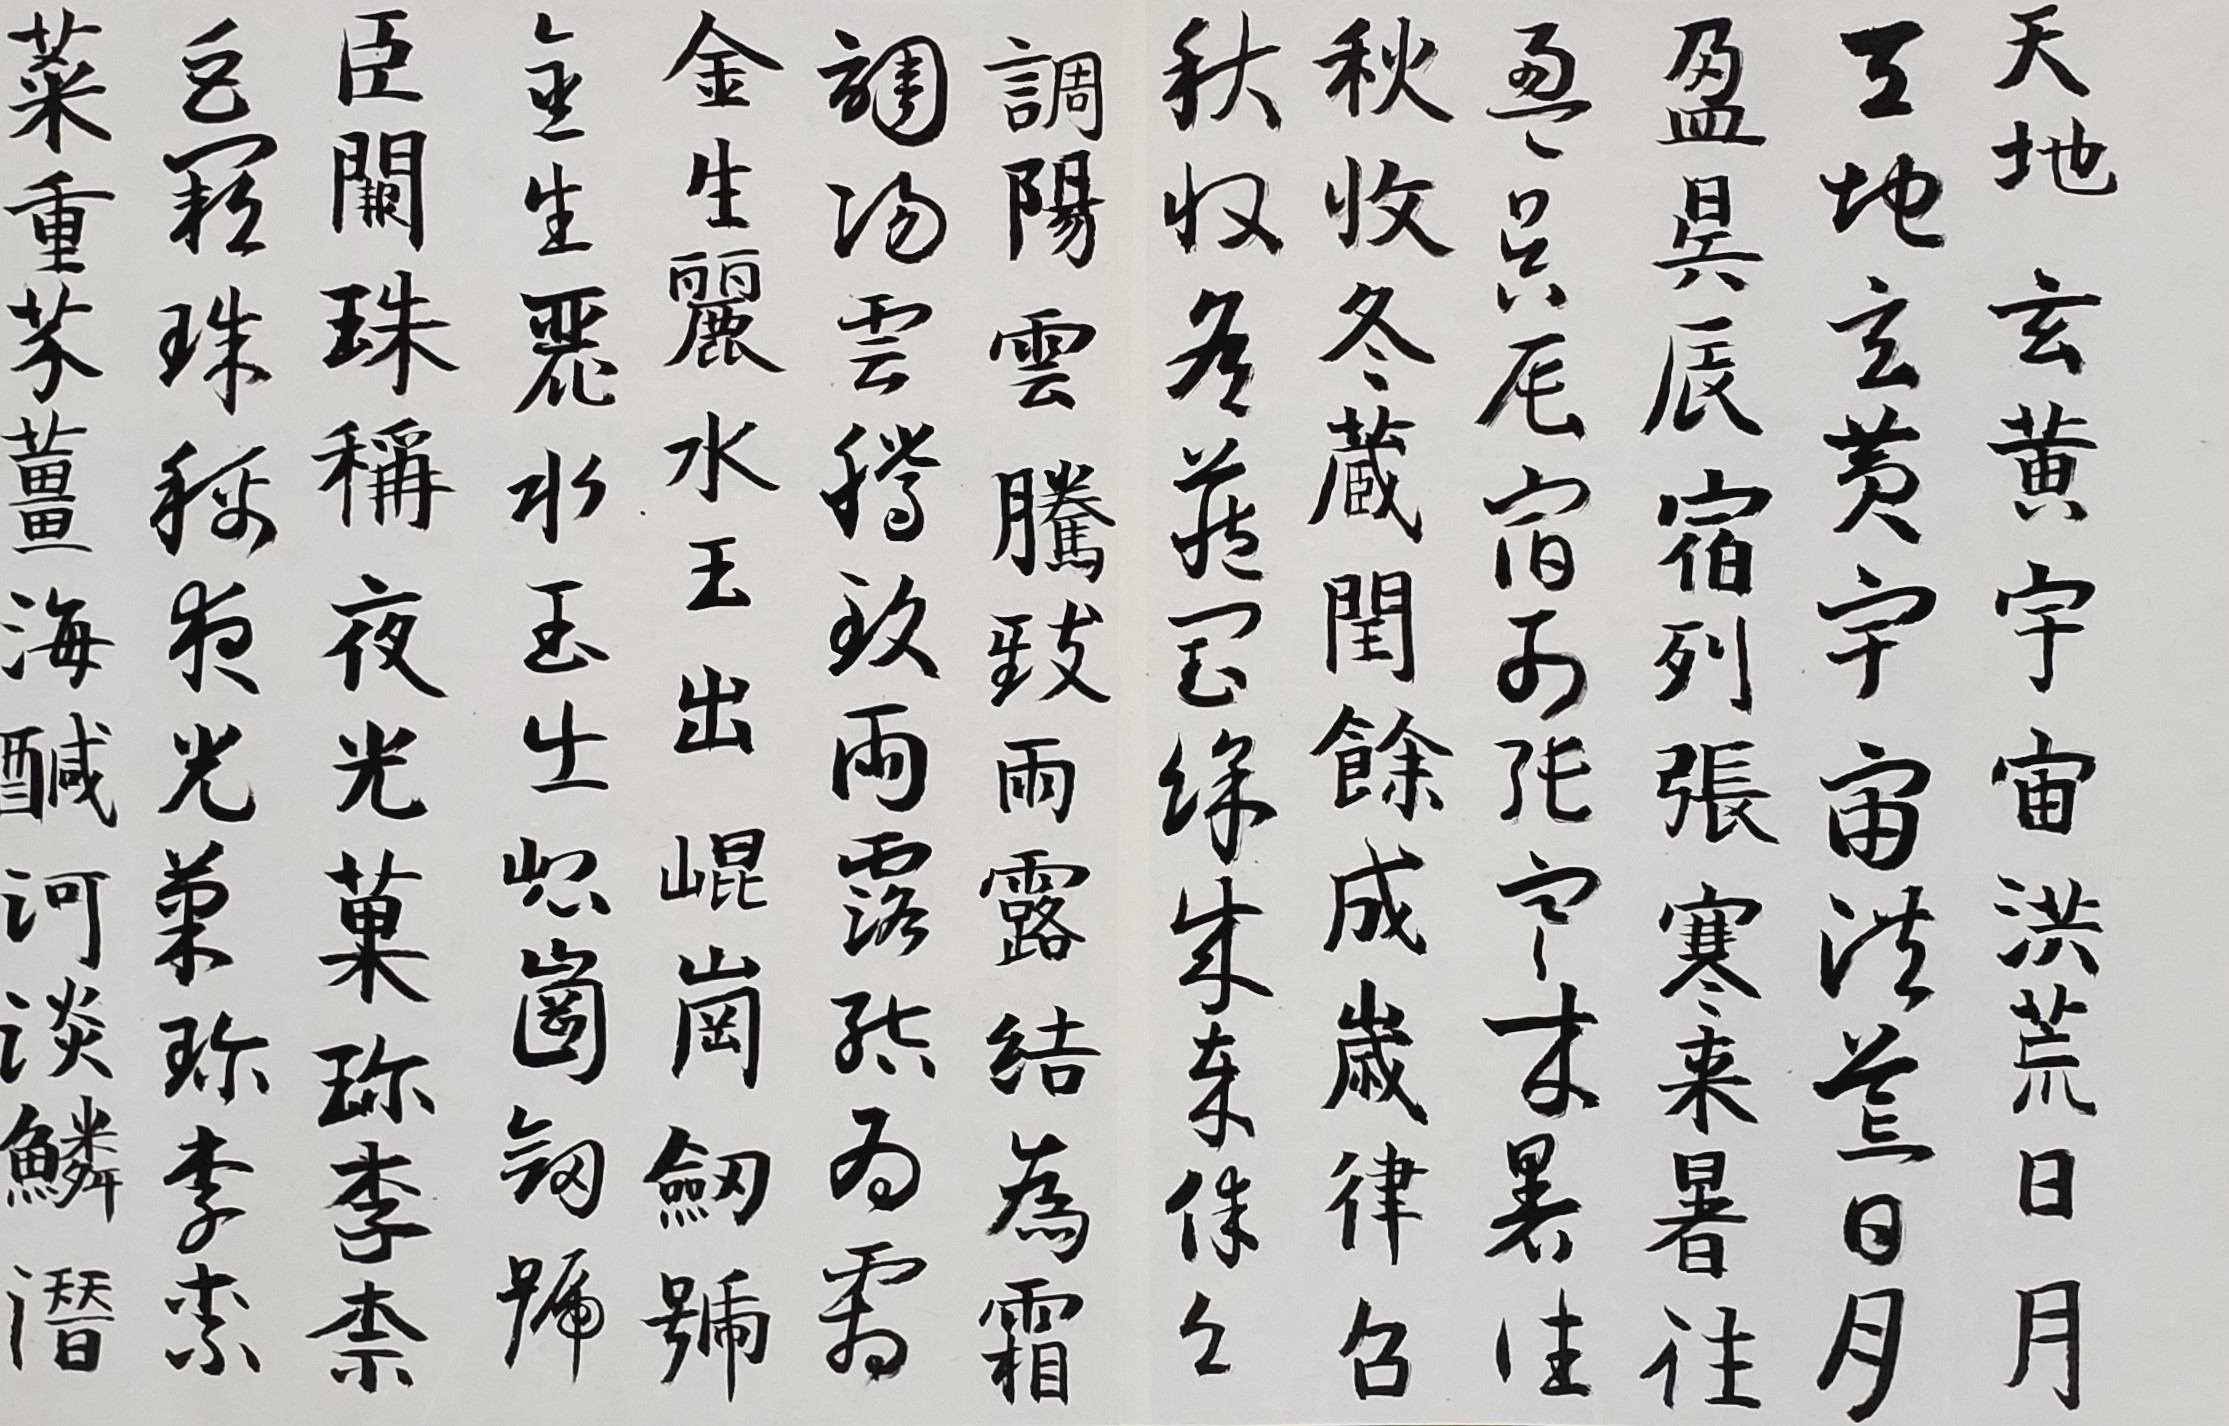 天地玄黄宇宙洪荒日月
天地玄黄宇宙洪荒日月
盈昃辰宿列張寒来暑往
盈昃辰宿列張寒来暑往
秋收冬蔵閏餘成歳律召
秋收冬蔵閏餘成歳律召
調陽雲騰致雨露結為霜
調陽雲騰致雨露結為霜
金生麗水玉出崐崗劒號
金生麗水玉出崐崗劒號
巨闕珠稱夜光菓珎李柰
巨闕珠稱夜光菓珎李柰
菜重芥薑海醎河淡鱗潜